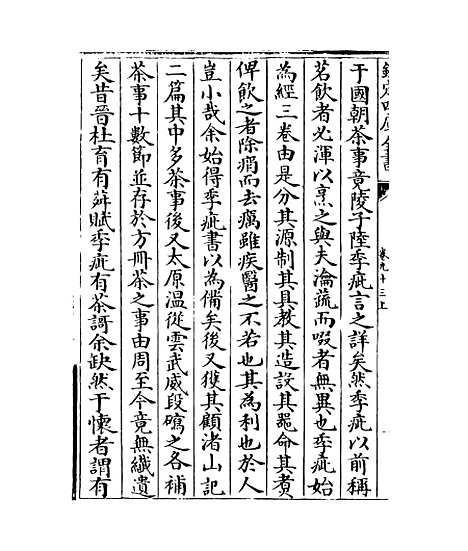 欽定四庫全書
卷九十三上
于國朝茶事竟陵子陸季疵言之詳矣然季疵以前稱
茗飲者必渾以烹之與夫瀹蔬而啜者無異也季疵始
為經三卷由是分其源制其具教其造設其器命其煑
俾飲之者除痟而去癘雖疾醫之不若也其為利也於人
豈小哉余始得季疵書以為備矣後又獲其顧渚山記
二篇其中多茶事後又太原温從雲武威段䃺之各補
茶事十數節並存於方冊茶之事由周至今竟無纖遺
矣昔晉杜育有荈賦季疵有茶謌余缺然于懷者謂有